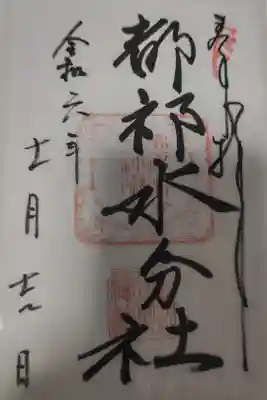 奉拝
都祁水分社
令和六年
十一月十六日